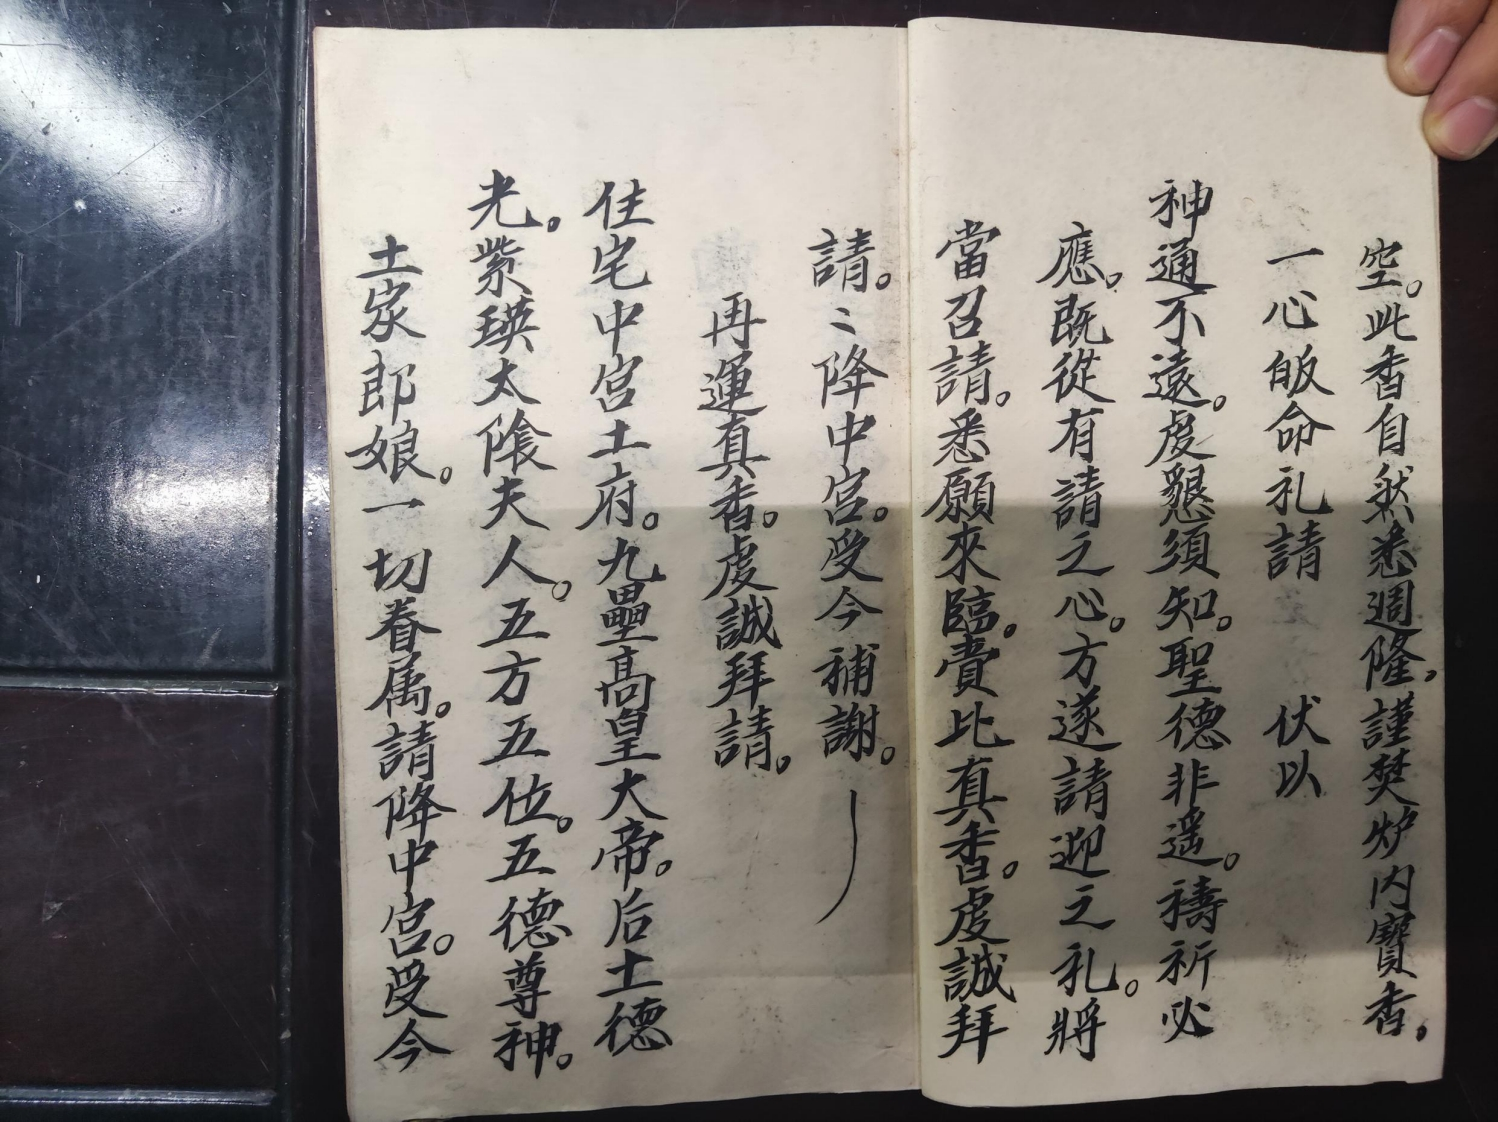 空。此香自然悉週隆。謹焚炉内寳香。
一心皈命礼請　伏以
神通不遠。虔懇須知。聖德非遥。禱祈必
應。既從有請之心。方遂請迎之礼。將
當召請。悉願來臨。賫比真香。虔誠拜
請。〻降中宫。受今補謝。
再運真香。虔誠拜請。
住宅中宫土府。九壘髙皇大帝。后土德
光。紫瑛太隂夫人。五方五位。五德尊神。
土家郎娘。一切眷属。請降中宫。受今